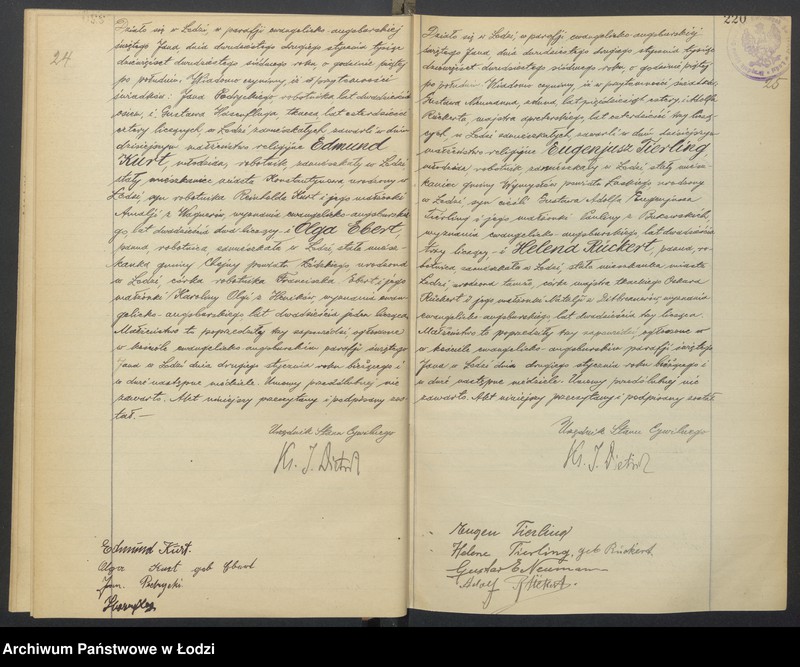 24
Działo się w Łodzi, w parafji ewangelicko-augsburskiej
świętego Jana, dnia dwudziestego drugiego stycznia tysiąc
dziewięćset dwudziestego siódmego roku, o godzinie piątej
po południu. Wiadomo czynimy, iż w przytomności
świadków: Jana robotnika, lat dwadzieścia
i Gustawa tkacza, lat czterdzieści
cztery liczących, w Łodzi zamieszkałych, zawarli w dniu
dzisiejszym małżeństwo religijne Edmund
Kurt, młodzian, robotnik, zamieszkały w Łodzi
stały mieszkaniec miasta Konstantynowa, urodzony w
Łodzi, syn robotnika Reinholda Kurt i jego małżonki
Amalji z Wagnerów, wyznania ewangelicko-augsburskie-
go, lat dwadzieścia dwa liczący - i Olga Ebert,
panna, robotnica, zamieszkała w Łodzi, stała miesz-
kanka gminy Chojny powiatu Łódzkiego, urodzona
w Łodzi, córka robotnika Franciszka Ebert i jego
małżonki Karoliny Olgi z wyznania ewan-
gelicko-augsburskiego, lat dwadzieścia jeden licząca.
Małżeństwo to poprzedziły trzy zapowiedzi, ogłoszone
w kościele ewangelicko-augsburskim parafji świętego
Jana w Łodzi dnia drugiego stycznia roku bieżącego i
w dwie następne niedziele. Umowy przedślubnej nie
zawarto. Akt niniejszy przeczytany i podpisany zos-
tał.—
Urzędnik Stanu Cywilnego
Ks. J. Dietrich
Edmund Kurt.
Olga Kurt geb Ebert
Jan
220
25
Działo się w Łodzi, w parafji ewangelicko-augsburskiej
świętego Jana, dnia dwudziestego drugiego stycznia tysiąc
dziewięćset dwudziestego siódmego roku, o godzinie piątej
po południu. Wiadomo czynimy, iż w przytomności świadków:
Gustawa Neumana, lat pięćdziesiąt cztery i Adolfa
Rückerta, majstra lat czterdzieści trzy liczą-
cych, w Łodzi zamieszkałych, zawarli w dniu dzisiejszym
małżeństwo religijne Eugenjusz Tierling
młodzian, robotnik, zamieszkały w Łodzi, stały miesz-
kaniec gminy Wymysłów powiatu Łaskiego, urodzony
w Łodzi, syn cieśli Gustawa Adolfa Eugenjusza
Tierling i jego małżonki Pauliny z
wyznania ewangelicko-augsburskiego, lat dwadzieścia
trzy liczący - i Helena Rückert, panna, ro-
botnica, zamieszkała w Łodzi, stała mieszkanka miasta
Łodzi, urodzona tamże, córka majstra tkackiego Oskara
Rückert i jego małżonki Natalji z wyznania
ewangelicko-augsburskiego, lat dwadzieścia trzy licząca.
Małżeństwo to poprzedziły trzy zapowiedzi, ogłoszone w
w kościele ewangelicko-augsburskim parafji świętego
Jana w Łodzi dnia drugiego stycznia roku bieżącego i
w dwie następne niedziele. Umowy przedślubnej nie
zawarto. Akt niniejszy przeczytany i podpisany został
Urzędnik Stanu Cywilnego
Ks. J. Dietrich
Eugen Tierling
Helene Tierling, geb Rückert
Gustav E. Neumann
Adolf Rückert.
Archiwum Państwowe w Łodzi